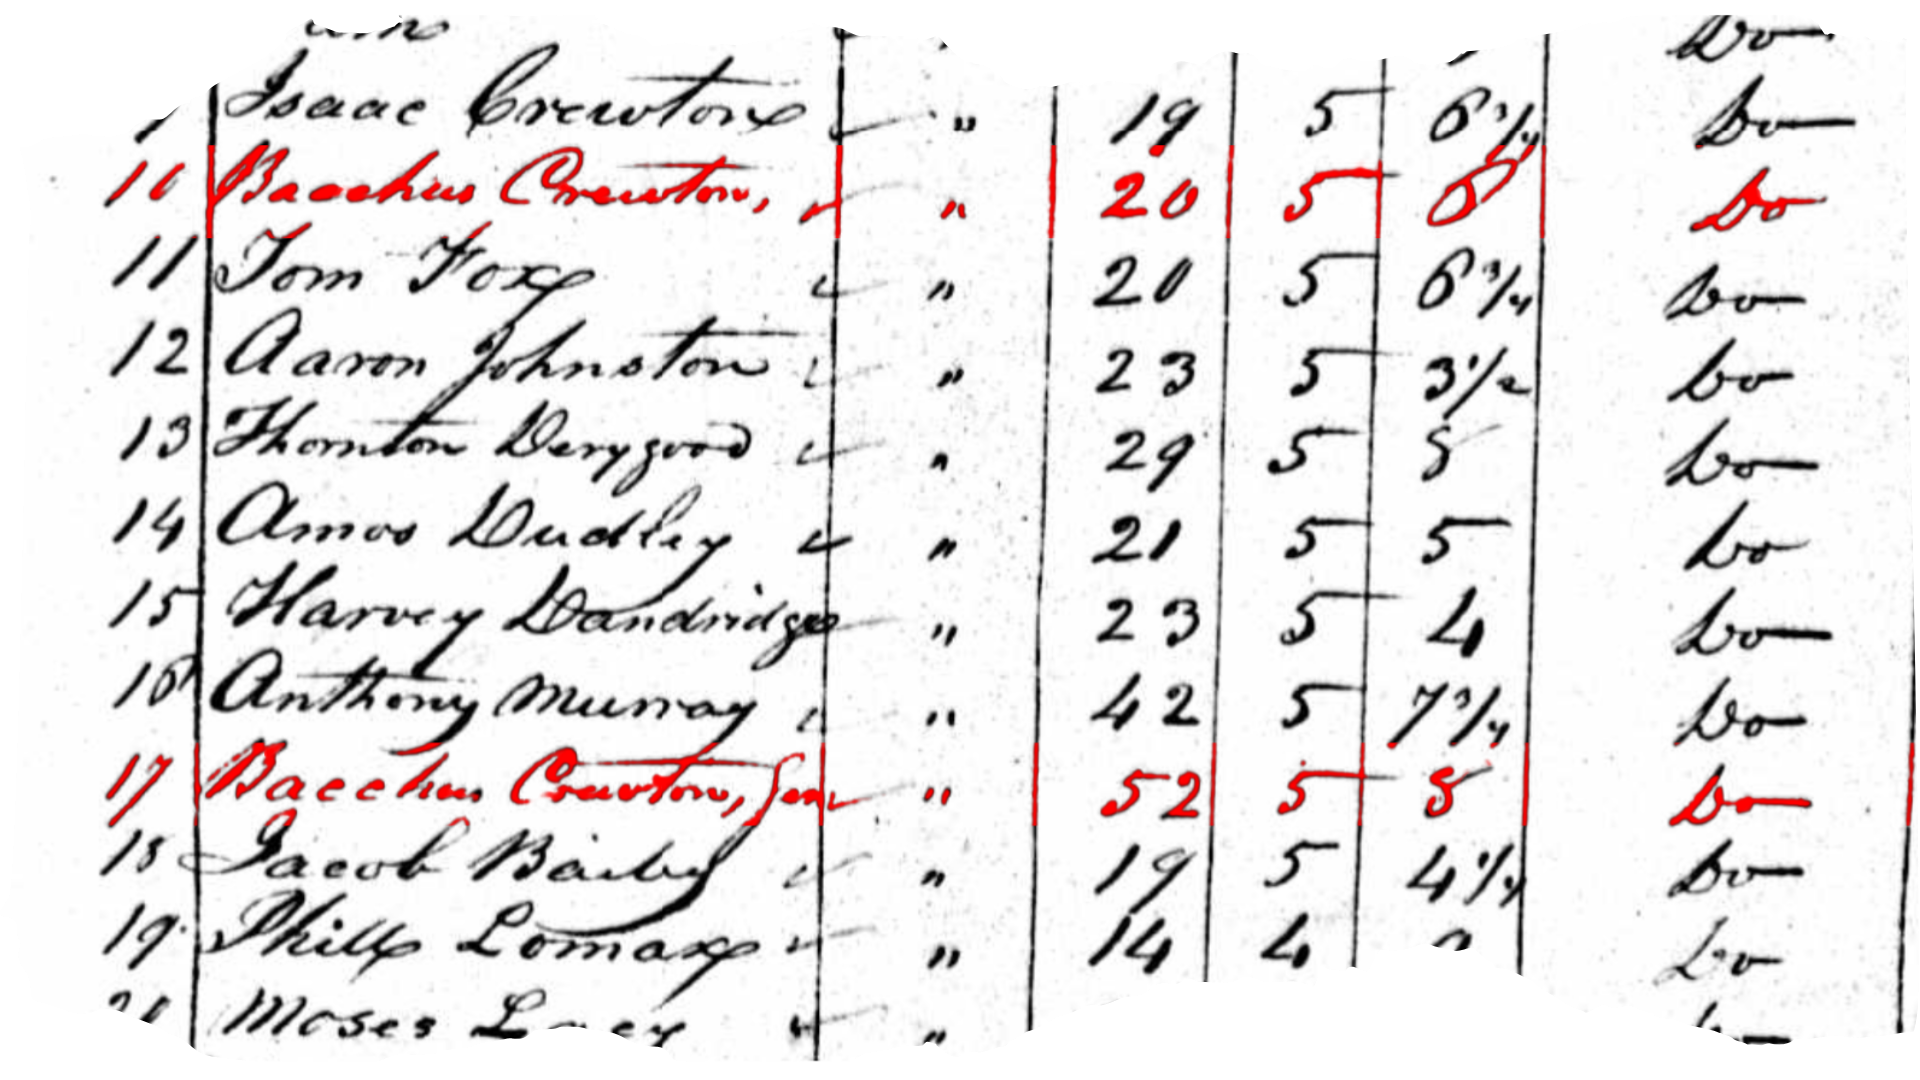 Do
Isaac Crewton " 19 5 6 3/4 Do
10 Bacchus Crewton, " 20 5 6 Do
11 Tom Fox " 20 5 6 3/4 Do
12 Aaron Johnston " 23 5 3 1/2 Do
13 Thornton Derygood " 29 5 8 Do
14 Amos Dudley " 21 5 5 Do
15 Harvey Dandridge " 23 5 4 Do
16 Anthony Murray " 42 5 7 3/4 Do
17 Bacchus Crewton, Sen " 52 5 8 Do
18 Jacob Baily " 19 5 4 1/4 Do
19 Phill Lomax " 14 4 Do
Moses "